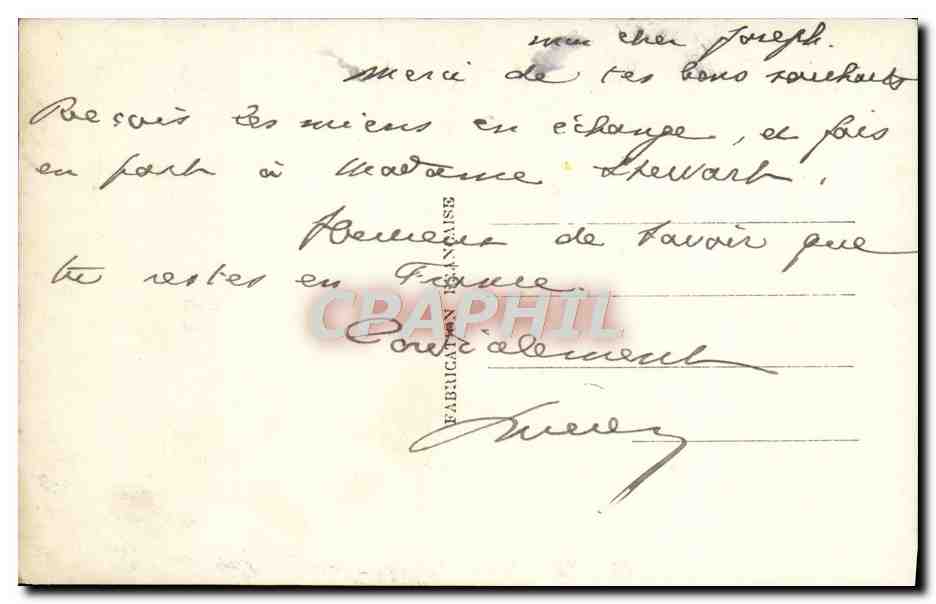 mon cher Joseph.
merci de tes bons souhaits
Reçois les miens en échange, et fais
en part à Madame Stewart.
Heureux de savoir que
tu restes en France.
Cordialement
FABRICATION FRANÇAISE
CPAPHIL